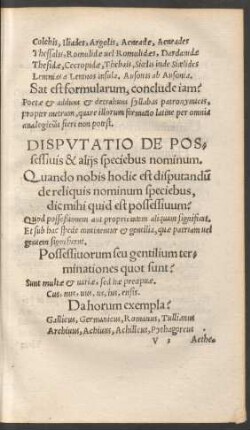 Colchis, Iliades, Argolis, Aeneadæ, Aenrades
Thessalis, Romulidæ uel Romolides, Dardanidæ
Thesidæ, Cecropidæ, Thebais, Sicelis inde Sicelides
Lemnias a Lemnos insula, Ausonis ab Ausonia.
Sat est formularum, conclude iam?
Poetæ & addunt & detrahunt syllabas patronymicis,
propter metrum, quare illorum formatio latine per omnia
analogicῶs fieri non potest.
DISPVTATIO DE POS-
sessiuis & alijs speciebus nominum.
Quando nobis hodie est disputandū
de reliquis nominum speciebus,
dic mihi quid est possessiuum?
Quod possessionem aut proprietatem aliquam significat.
Et sub hac specie continentur & gentilia, quæ patriam uel
gentem significant.
Possessiuorum seu gentilium ter-
minationes quot sunt?
Sunt multæ & uariæ, sed hæ præcipuæ.
Cus, nus, uus, us, ius, ensis.
Da horum exempla?
Gallicus, Germanicus, Romanus, Tullianus
Archiuus, Achiuus, Achilicus, Pythagoreus
V 2 Aethe-